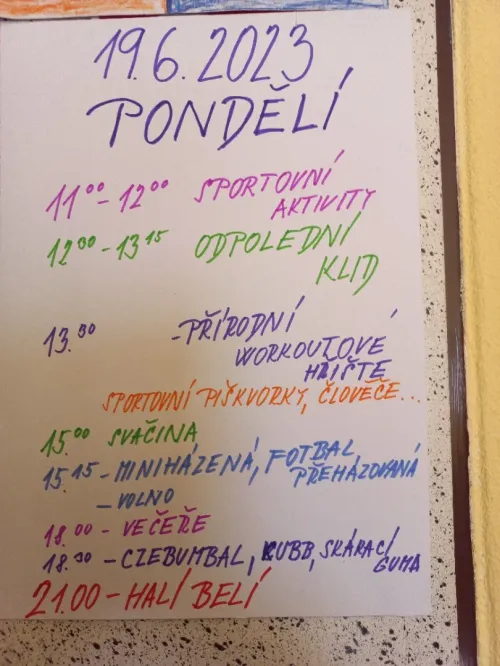 19.6.2023
PONDĚLÍ
11⁰⁰ - 12⁰⁰ SPORTOVNÍ
AKTIVITY
12³⁰ - 13¹⁵ ODPOLEDNÍ
KLID
13.30 - PŘÍRODNÍ
WORKOUTOVÉ
HŘIŠTĚ
SPORTOVNÍ PIŠKVORKY, ČLOVĚČE...
15.⁰⁰ SVAČINA
15.15 - MINIHÁZENÁ, FOTBAL,
PŘEHAZOVANÁ
- VOLNO
18.00 - VEČEŘE
18.30 - CZEBUMBAL, KUBB, SKÁKACÍ
GUMA
21.00 - HALÍ BELÍ